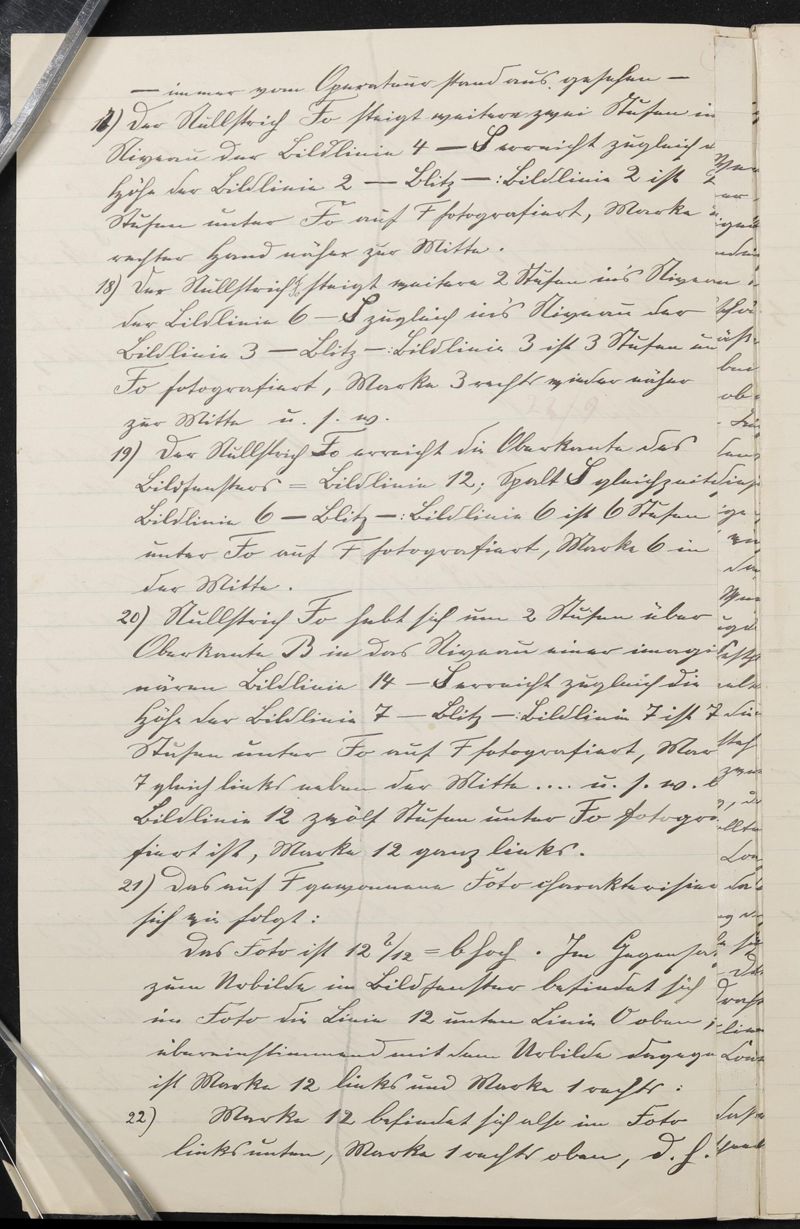 — immer vom Operateurstand aus gesehen —
17) Der Nullstrich Fo steigt weitere zwei Stufen in
Niveau der Bildlinie 4 — S erreicht zugleich
Höhe der Bildlinie 2 — Blitz —: Bildlinie 2 ist 2
Stufen unter Fo auf F fotografiert, Marke
rechter Hand näher zur Mitte.
18) Der Nullstrich steigt weitere 2 Stufen in's Niveau
der Bildlinie 6 — S zugleich in's Niveau der
Bildlinie 3 — Blitz —: Bildlinie 3 ist 3 Stufen un
Fo fotografiert, Marke 3 rechts wieder näher
zur Mitte u. s. w.
19) Der Nullstrich Fo erreicht die Oberkante des
Bildfensters = Bildlinie 12; Spalt S gleichzeit
Bildlinie 6 — Blitz —: Bildlinie 6 ist 6 Stufen
unter Fo auf F fotografiert, Marke 6 in
der Mitte.
20) Nullstrich Fo hebt sich um 2 Stufen über
Oberkante B in das Niveau einer imagi
nären Bildlinie 14 — S erreicht zugleich die
Höhe der Bildlinie 7 — Blitz —: Bildlinie 7 ist 7
Stufen unter Fo auf F fotografiert, Mar
7 gleich links neben der Mitte .... u. s. w. b
Bildlinie 12 zwölf Stufen unter Fo fotogra
fiert ist, Marke 12 ganz links.
21) Das auf F gewonnene Foto charakterisier
sich wie folgt:
Das Foto ist 12 b/12 = b hoch. Im Gegensa
zum Urbilde im Bildfenster befindet sich
im Foto die Linie 12 unten Linie 0 oben;
übereinstimmend mit dem Urbilde dagege
ist Marke 12 links und Marke 1 rechts:
22) Marke 12 befindet sich also im Foto
links unten, Marke 1 rechts oben, d. h.